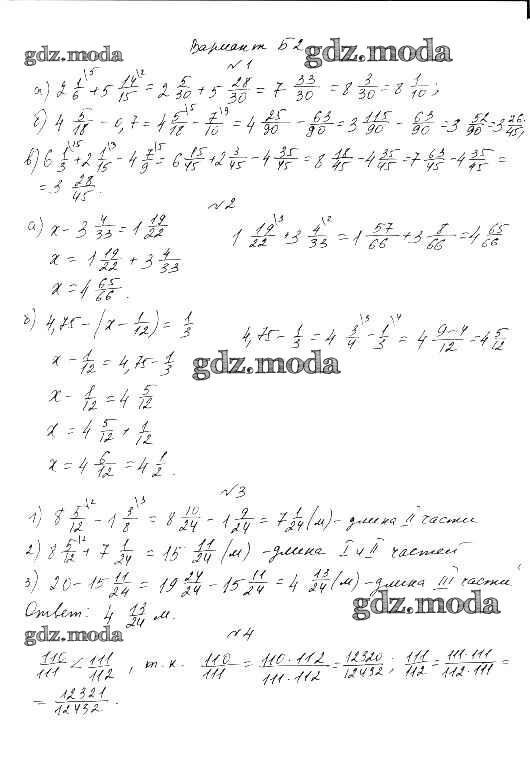 Вариант Б2
gdz.moda gdz.moda
№1
а) 2 1/6 \5 + 5 14/15 \2 = 2 5/30 + 5 28/30 = 7 33/30 = 8 3/30 = 8 1/10;
б) 4 5/18 - 0,7 = 4 5/18 \5 - 7/10 \9 = 4 25/90 - 63/90 = 3 115/90 - 63/90 = 3 52/90 = 3 26/45;
в) 6 1/3 \15 + 2 1/15 \3 - 4 7/9 \5 = 6 15/45 + 2 3/45 - 4 35/45 = 8 18/45 - 4 35/45 = 7 63/45 - 4 35/45 =
= 3 28/45.
gdz.moda
№2
а) x - 3 4/33 = 1 19/22 1 19/22 \3 + 3 4/33 \2 = 1 57/66 + 3 8/66 = 4 65/66
x = 1 19/22 + 3 4/33
x = 4 65/66.
б) 4,75 - (x - 1/12) = 1/3 4,75 - 1/3 = 4 3/4 \3 - 1/3 \4 = 4 9-4/12 = 4 5/12
x - 1/12 = 4,75 - 1/3
gdz.moda
x - 1/12 = 4 5/12
x = 4 5/12 + 1/12
x = 4 6/12 = 4 1/2.
№3
1) 8 5/12 \2 - 1 3/8 \3 = 8 10/24 - 1 9/24 = 7 1/24 (м) - длина II части
2) 8 5/12 \2 + 7 1/24 = 15 11/24 (м) - длина I и II частей
3) 20 - 15 11/24 = 19 24/24 - 15 11/24 = 4 13/24 (м) - длина III части
Ответ: 4 13/24 м.
gdz.moda
gdz.moda
№4
110/111 < 111/112, т.к. 110/111 = 110·112/111·112 = 12320/12432; 111/112 = 111·111/112·111 =
= 12321/12432.